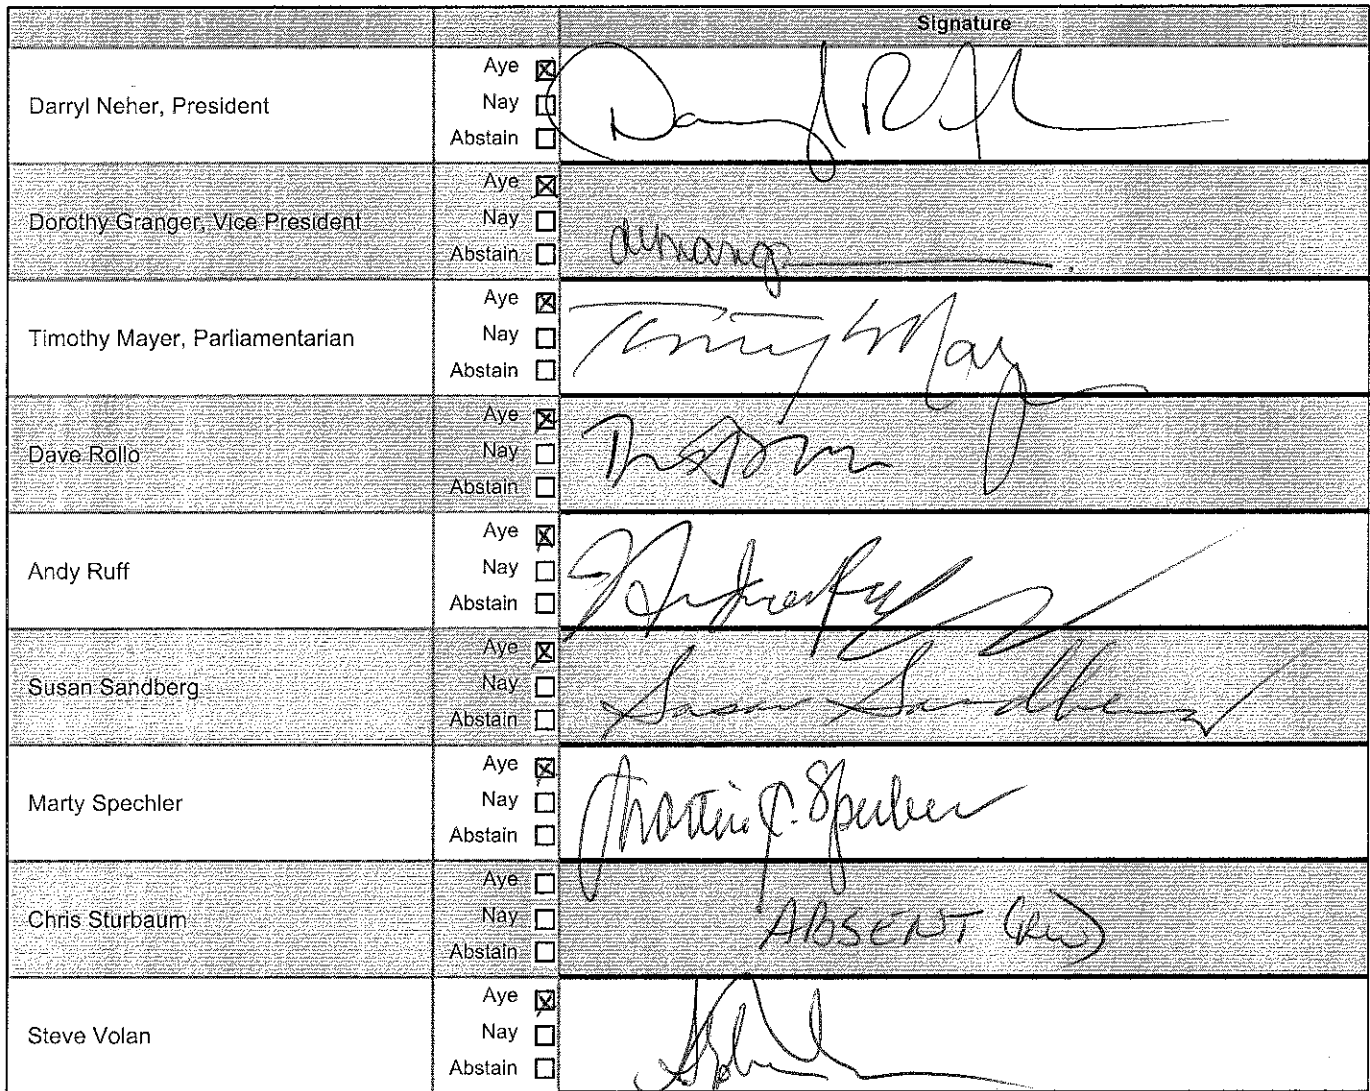 Signature
Darryl Neher, President
Aye ☒
Nay ☐
Abstain ☐
Dorothy Granger, Vice President
Aye ☒
Nay ☐
Abstain ☐
Timothy Mayer, Parliamentarian
Aye ☒
Nay ☐
Abstain ☐
Timothy Mayer
Dave Rollo
Aye ☒
Nay ☐
Abstain ☐
Andy Ruff
Aye ☒
Nay ☐
Abstain ☐
Susan Sandberg
Aye ☒
Nay ☐
Abstain ☐
Susan Sandberg
Marty Spechler
Aye ☒
Nay ☐
Abstain ☐
Chris Sturbaum
Aye ☐
Nay ☐
Abstain ☐
ABSENT
Steve Volan
Aye ☒
Nay ☐
Abstain ☐